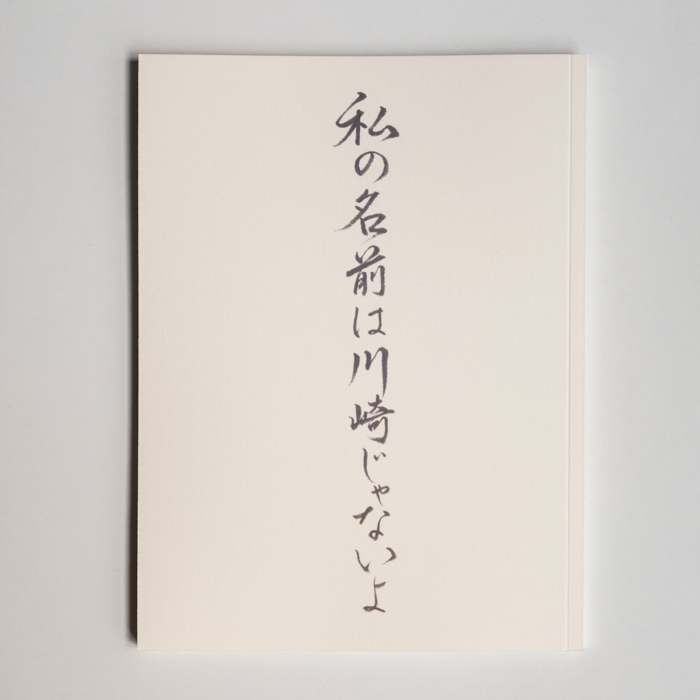 私の名前は川崎じゃないよ